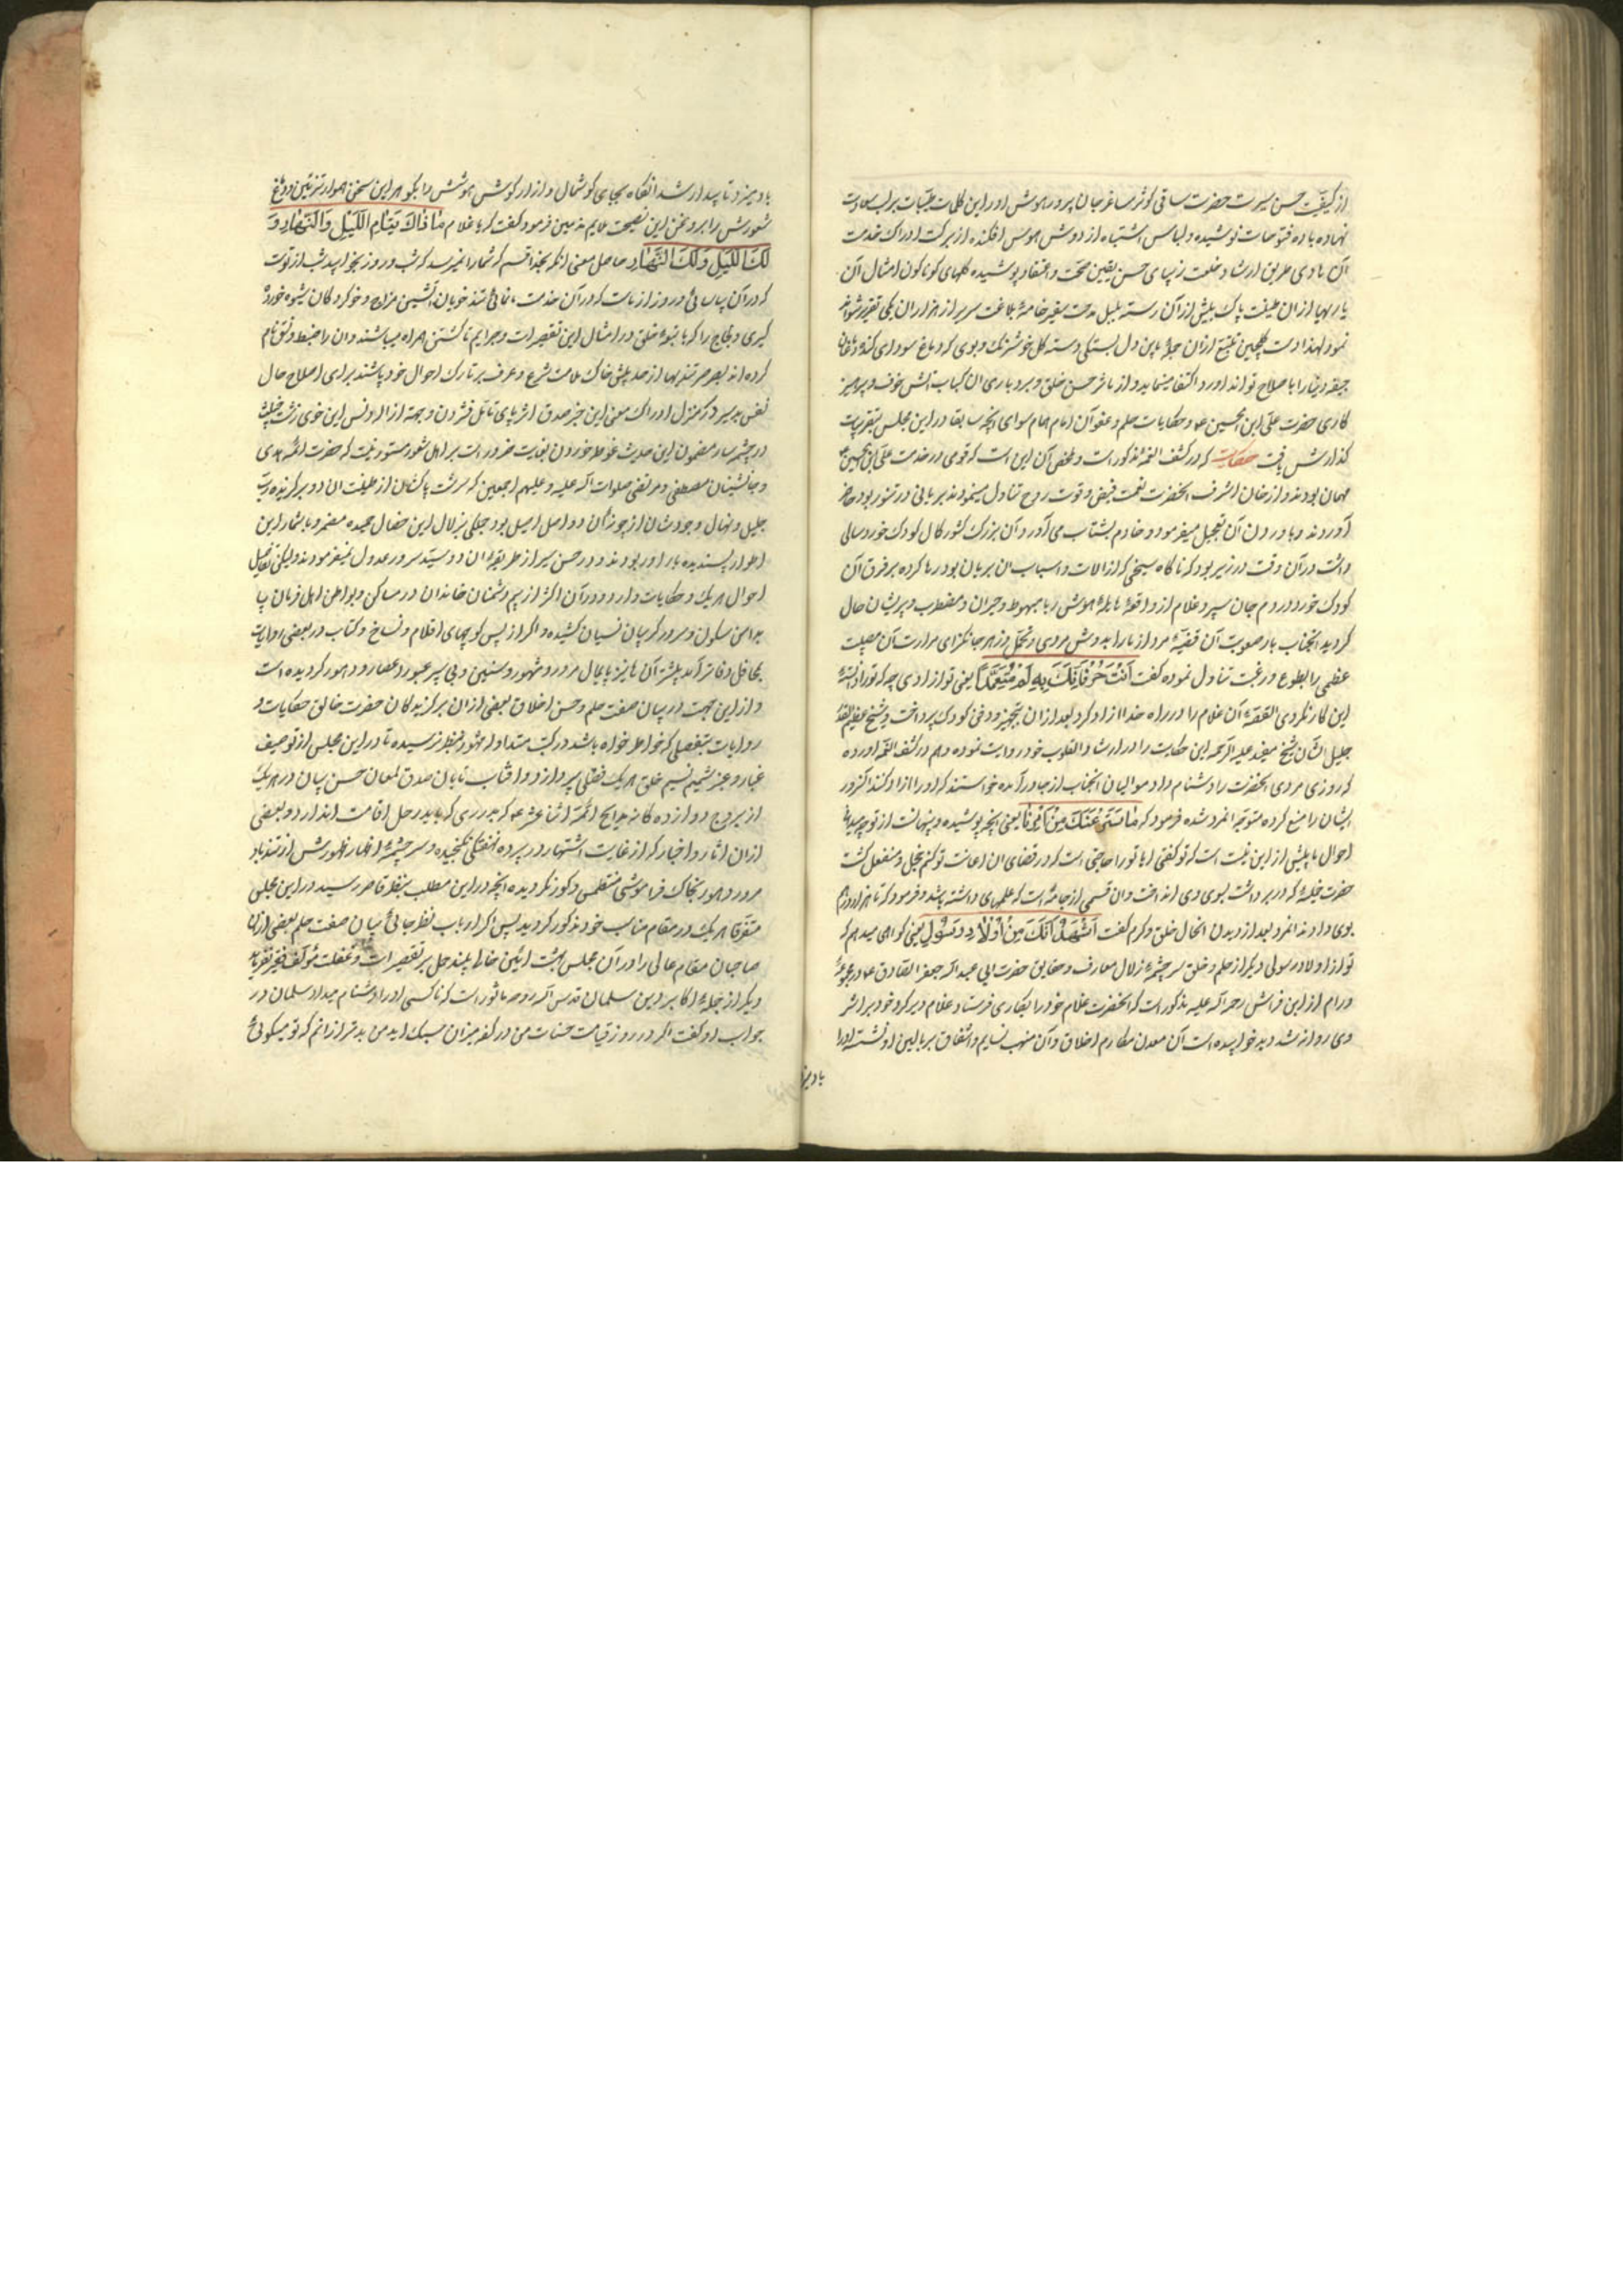 از کیفیّت حسن سیرت حضرت ساقی کوثر ساغر جان پرور هوش اورا این کلمات طیّبات بر لب سعادت
نهاده باده فتوحات نوشیده و لباس اشتباه از دوش هوس افکنده از برکت ادراک خدمت
آن هادی طریق ارشاد خلعت زیبای حسن یقین محبّت و اعتقاد پوشیده گلهای گوناگون امثال آن
بلبل مدحت سفیر خامهٔ بلاغت سریر از هزاران یکی تقریر
نمود لهذا دست گلچین تتبّع از ان دل بستگی دسته گل خوشرنگ و بوی که دماغ سودای
با صلاح تواند اورد اکتفا مینماید و از ماثر حسن خلق و بردباری ان کباب آتش خوف و پرهیز
کاری حضرت علّی ابن الحسین ع و حکایات حلم و عفو آن امام همام سوای انچه سابقا در این مجلس بتقریبات
گذارش یافت حکایت که در کشف الغمه مذکور است و ملخص آن این است که قومی در خدمت علّی ابن الحسین ع
مهمان بودند و از خان اشرف انحضرت نعمت فیض و قوت روح تناول مینمودند بریانی در تنور بود حاضر
آوردند و به اوردن آن تعجیل میفرمود و خادم بشتاب می آورد و آن بزرک کشور کمال کودک خورد سالی
داشت در آن وقت در زیر بود که ناگاه سیخی که از الات و اسباب ان بریان بود رها کرده بر فرق آن
کودک خورد و در دم جان سپرد غلام از واقعهٔ هایلهٔ هوش ربا مبهوط و حیران و مضطرب و پریشان حال
گردید انجناب بار صعوبت آن قضیّهٔ مرد ازما را بدوش مردی و تحمّل و زهر جانگزای مرارت آن مصیبت
عظمی را بطوع و رغبت تناول نموده گفت اَنْتَ حُرٌّ فَاِنَّکَ بِهِ لَمْ تَتَعَمَّدْ یعنی تو ازادی چه که تو دانسته
این کار نکردی القصّهٔ آن غلام را در راه خدا ازاد کرد بعد از ان بتجهیز و دفن کودک پرداخت و شیخ عظیم القدر
جلیل الشّان شیخ مفید علیه الرّحمه این حکایت را در ارشاد القلوب خود روایت نموده و هم در کشف الغمّه اورده
که روزی مردی انحضرت را دشنام داد موالیان انجناب از جا درآمده خواستند که اورا ازار کنند انسرور
ایشان را منع کرده متوجّه انمرد شده فرمود که مٰا سَتَرَ عَنْکَ مِنْ اَمْرِنٰا یعنی انچه پوشیده و پنهانست از تو
احوال ما پیش از این نیست است که تو گفتی ایا تو را حاجتی است که در قضای ان اعانت تو کنم مرد خجل و منفعل گشت
حضرت خمیصهٔ که در بر داشت بسوی وی انداخت و ان قسمی از جامهٔ است که علمهای داشته باشد و فرمود که تا هزار درم
بوی دادند انمرد بعد از دیدن انحال خلق و کرم گفت اَشْهَدُ اَنَّکَ مِنْ اَوْلٰادِ رَسُولِ یعنی گواهی میدهم که
تو از اولاد رسولی دیگر از حلم و خلق سرچشمهٔ زلال معارف و حقایق حضرت ابی عبد الله جعفر الصّادق ع در مجموعهٔ
ورام از این فراش رحمه الله علیه مذکور است که انحضرت غلام خود را بکاری فرستاد غلام دیر کرد خود بر اثر
وی روانه شد دید خوابیده است آن معدن مکارم اخلاق و آن منهب نسایم واشفاق بر بالین او نشسته اورا
بادمیز
بادمیزد تا بیدار شد انگاه بجای گوشمال و ازار گوش هوشش را بگوهر این سخن هموار تزئین و دماغ
شعورش را بروغن این نصیحت ملایم تدهین فرمود گفت که یا غلام مٰا ذٰاکَ یَنٰامِ اللَّیْلِ وَالنَّهٰارِ وَ
لَکَ اللَّیْلِ وَلَکَ النَّهٰارِ حاصل معنی انکه بخدا قسم که شما را نمیرسد که شب و روز بخوابید شب از تو است
که در آن بیاسائی و روز از ما است که در آن خدمت ما نمائی تند خویان آتشین مزاج و خوکردگان بشیوهٔ خورده
گیری و لجاج را که با انبوهٔ خلق در امثال این تقصیرات و جرایم تا کشتن همراه میباشند و ان را ضبط و نسق نام
کرده اند بصرصر تندیها از حد بیش خاک ملامت شرع و عرف بر تارک احوال خود پاشند برای اصلاح حال
نفس بدسیر در منزل ادراک معنی این خبر صدق اثر پای تامّل فشردن و جهة ازاله دنس این خوی زشت
در چشمه سار مضمون این حدیث غوطه خوردن بغایت ضرور است بر اهل شعور مستور نیست که حضرت ائمّه هدی
و جانشینان مصطفی و مرتضی صلوات الله علیه و علیهم اجمعین که سرشت پاکشان از طینت ان دو برگزیده ربّ
جلیل و نهال وجودشان از جوزان دو اصل اصیل بود جملکی بزلال این خصال حمیده مثمر و باثمار این
اطوار پسندیده بار اور بودند و در حسن سیر از طریقهٔ ان دو سیّد سرور عدول نمیفرمودند ولیکن تفاصیل
احوال هریک و حکایات وارده در آن اکثر از بیم دشمنان خاندان در مساکن و بواطن اهل زمان پا
بدامن سکون و سر در گریبان نسیان کشیده و اگر از پس کوچهای اقلام و نساخ و کتّاب در بعضی روایات
بمحافل دفاتر آمد بیشتر آن ها نیز پایمال مرور و شهور و سنین و پی سپر عبور اعصار و دهور گردیده است
و از این جهت در بیان صفت حلم و حسن اخلاق بعضی از ان برگزیدگان حضرت خالق حکایات و
روایات بتفصیلی که خواطر خواه باشد در کتب متداوله مشهوره بنظر نرسیده تا در این مجلس از توصیف
غبار و عنبر شمیم نسیم خلق هریک فصلی پردازد و افتاب تابان صدق لمعان حسن بیان در هریک
از بروج دوازده کانه مدایح ائمّهٔ اثنا عشر ع که میدرری که باید رحل اقامت اندازد و بعضی
ازان اثار و اخبار که از غایت اشتهار در پرده انفتکی نگنجیده و سرچشمهٔ اظهار ظهورش از تندباد
مرور دهور بخاک فراموشی منطمس و کور نکردیده انچه در این مطلب بنظر قاصر رسید در این مجلس
متفرقا هریک در مقام مناسب خود مذکور گردید پس اگر ارباب نظر جائی بیان صفت حلم بعضی از ان
صاحبان مقام عالی را در آن مجلس بهشت ائین خالی بینند حمل بر تقصیرات و غفلت مؤلّف
دیگر از جملهٔ اکابر دین سلمان قدس الله روحه ماثور است که ناکسی اورا دشنام میداد سلمان در
جواب او گفت اگر در روز قیامت حسنات من در کفه میزان سبک اید من بدتر از انم که تو میگوئی